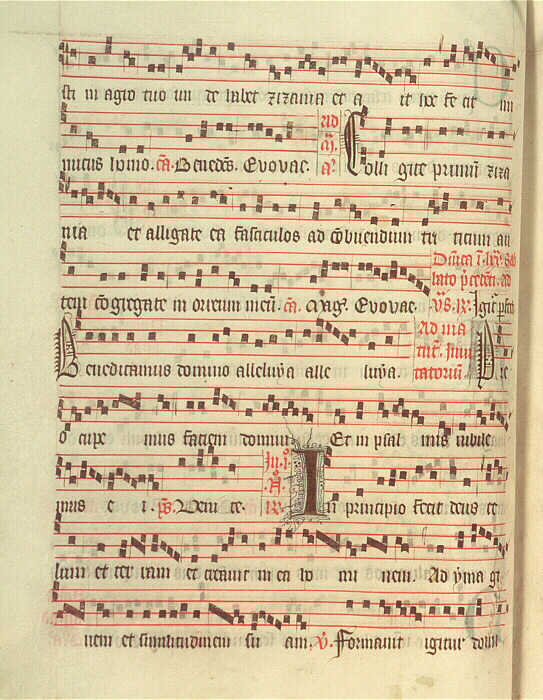 sti in agro tuo un de habet zizania et a it hoc fe cit ini
micus homo. ca. Bened. Evovae. ad m. a. Colli gite primum ziza
nia et alligate ea fasciculos ad coburendum tri ticum au
tem cogregate in orreum meu. ca. Mag. Evovae. Igit
Benedicamus domino alleluya alle luya. Ad ma tut. invi tatorium Pre
o cupe mus faciem domini Et in psal mis iubile
mus e i. ps. Veni te. In principio fecit deus ce
lum et ter ram et creavit in ea ho mi nem Ad yma gi
nem et similitudinem su am. V. Formavit igitur domi